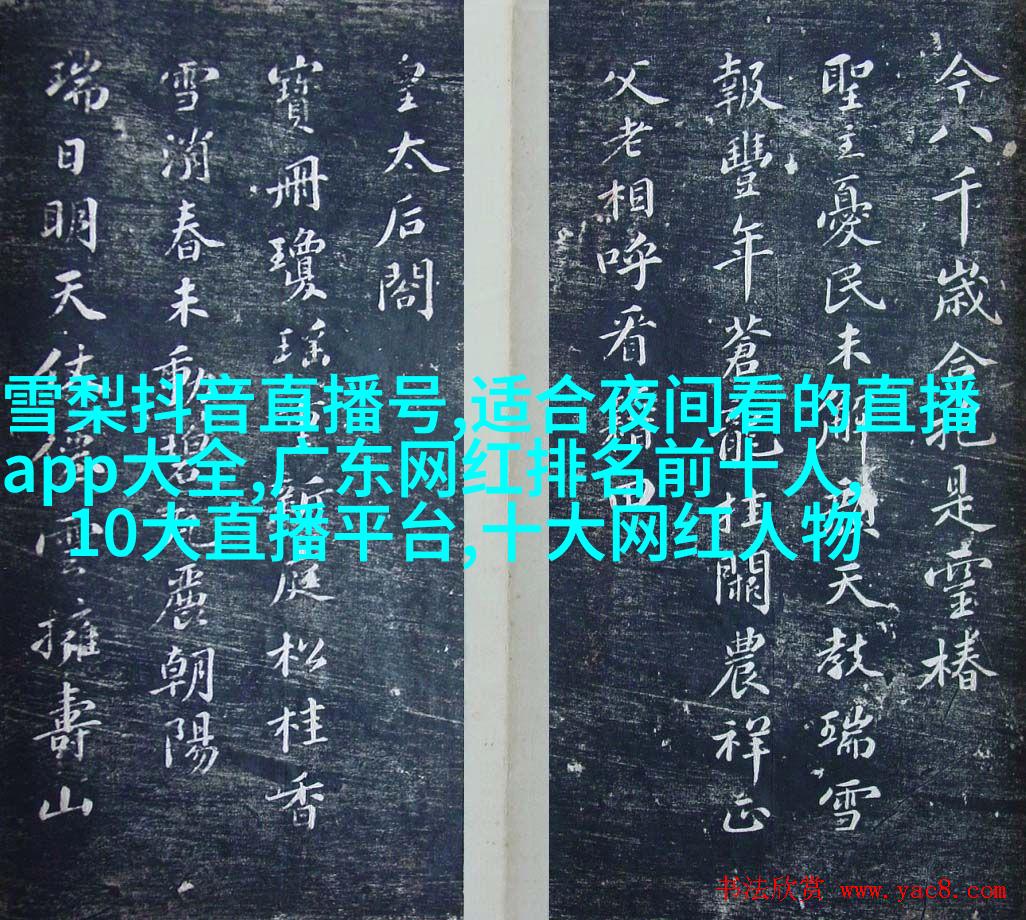 今八千歲合抱是靈椿
聖主憂民未解顏天教瑞雪
報豐年蒼龍挂闕農祥正
父老相呼看田
皇太后閤
寶冊瓊瑤重新庭松桂香
雪消春未動碧瓦麗朝陽
瑞日明天仗仙雲擁壽山
雪梨抖音直播号,适合夜间看的直播
app大全,广东网红排名前十人,
10大直播平台,十大网红人物
书法欣赏 www.yac8.com